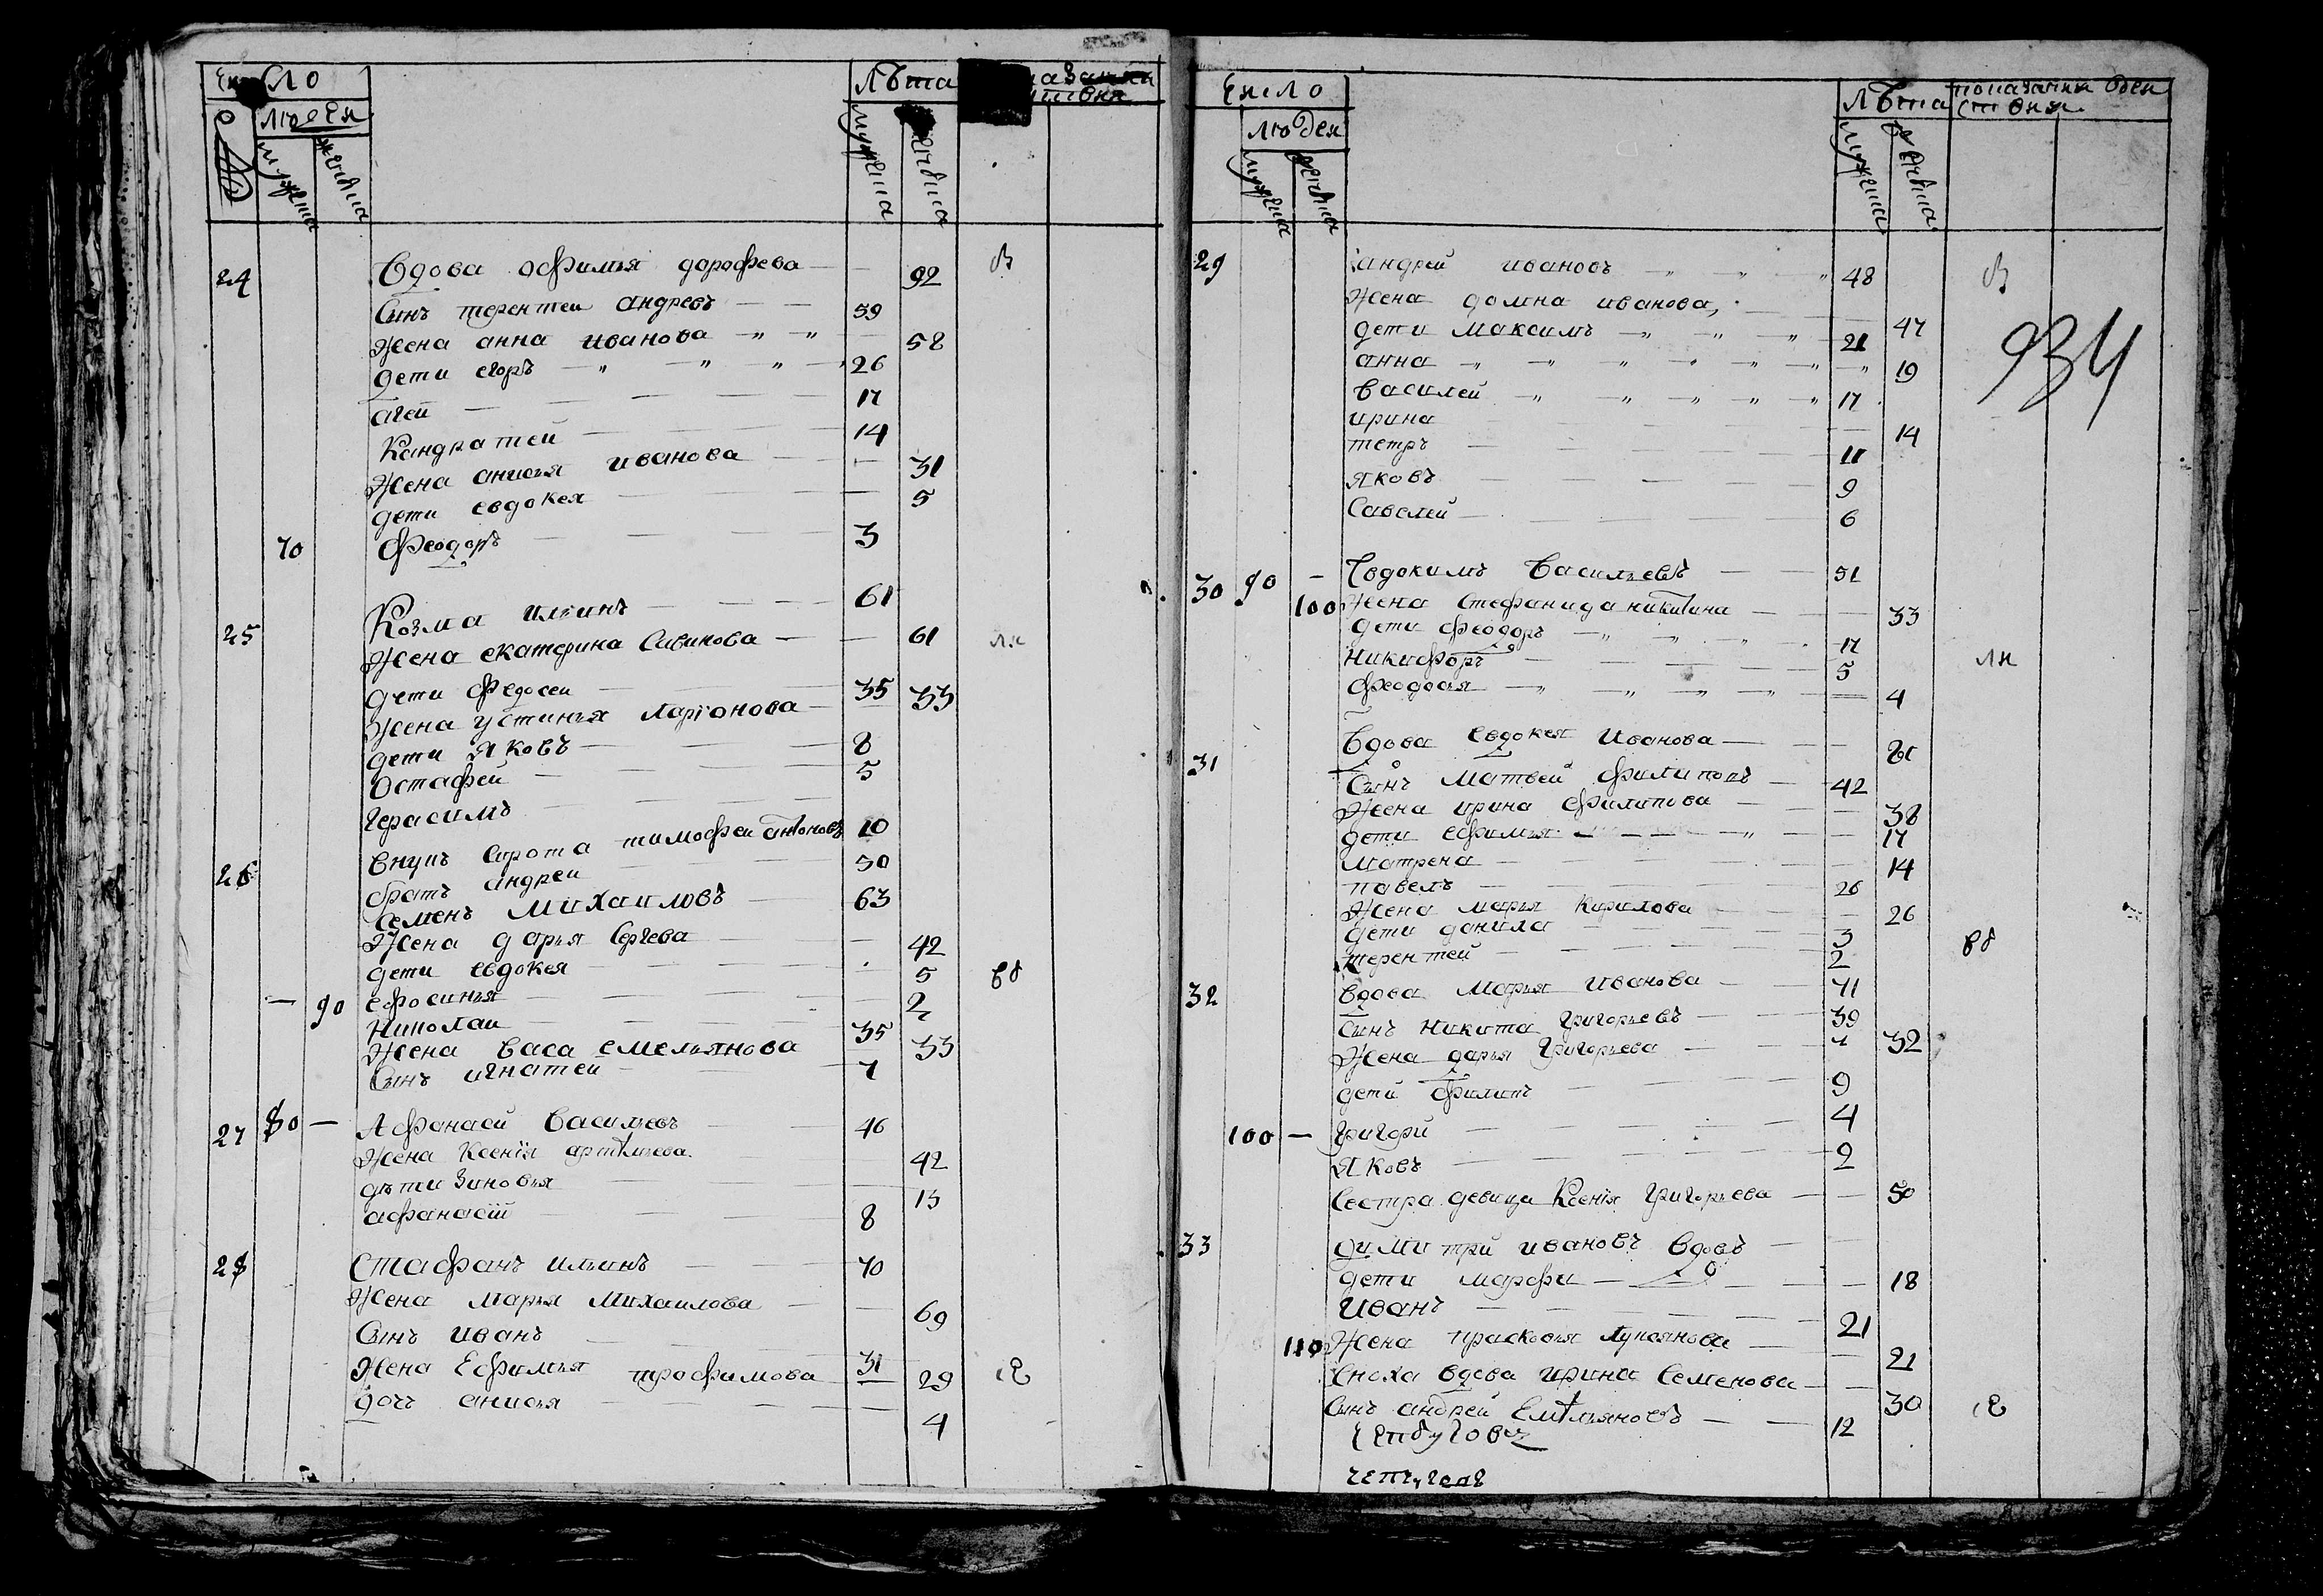 Число
людеи
мужеска
женска
Лѣта
мужеска
женска
24 Вдова офимья дорофева — — 92 В
Сынъ терентеи андревъ — — 59
Жена анна иванова — 58
дети егоръ — 26
агей — 17
Кандратей — 14
Жена анисья иванова — 31
дети евдокея — 5
70 Феодоръ — 3
25 Козма ильинъ — 61
Жена екатерина Савинова — — 61 ли
дети федосеи — 35
Жена устинья ларіонова — 33
дети яковъ — 8
Остафей — 5
Герасимъ
внукъ сирота тимофеи антоновъ 10
26 братъ андреи — 50
Семенъ Михаиловъ — 63
Жена дарья Сергева — 42
дети евдокея — 5 вд
— 90 ефросинья — 2
Николаи — 35
Жена Васа емельянова 33
Сынъ игнатеи — 7
27 80 — Афонасеи Васильевъ 46
Жена Ксенія артемьева — 42
дѣти Зиновья — 13
афанасіи — 8
28 Стафанъ ильинъ — 70
Жена марья Михаилова — — 69
Сынъ иванъ
Жена Ефимья трофимова 31 29
дочь анисья — 4
Число
людеи
мужеска
женска
Лѣта
мужеска
женска
показаніи деи
ствия
29 андрей ивановъ — 48 В
Жена домна иванова, — 47
934
дети Максимъ — 21
анна — 19
Василей — 17
ирина — 14
петръ — 11
яковъ — 9
Савелий — 6
30 90 — Евдокимъ Васильевъ — 51
100 Жена Стефанида никитина — 33
дети феодоръ — 17
Никифоръ — 5 ли
феодосья — 4
31 Вдова евдокея Иванова — — 61
Сынъ матвей филиповъ — 42
Жена ирина филипова — 38
дети ефимья — 17
матрена — 14
павелъ — 26
Жена марья кирилова — 26
дети данила — 3
терентей — 2 вд
32 вдова Марья иванова — 71
Сынъ Никита Григорьевъ — 39
Жена дарья Григорьева — 32
дети филипъ — 9
100 — Григори — 4
Яковъ — 2
Сестра девица Ксенія Григорьева — — 50
33 димитри ивановъ вдовъ —
дети марфа — 18
Иванъ — 21
110 Жена прасковья лукоянова — 21
Сноха вдова ирина Семенова — — 30
Сынъ андрей Емельяновъ — — 12